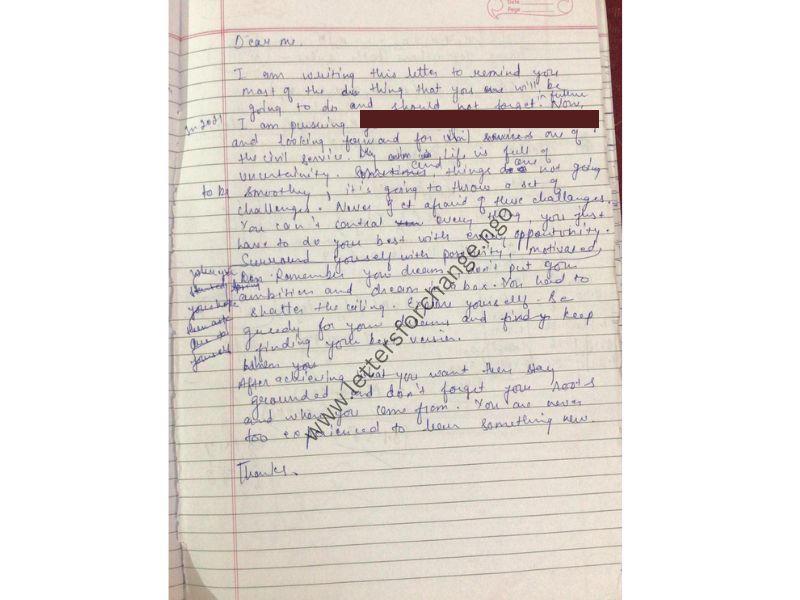 Date
Page
Dear me.
I am writing this letter to remind you
most of the thing that you will be
going to do and should not forget in future
in 2021 I am pursuing Now,
and looking forward for civil services one of
the civil service. life is full of
uncertainity. Sometimes, and things are not going
to be smoothly, it's going to throw a set of
challenges. Never get afraid of these challanges.
You can't control every thing you just
have to do your best with every opportunity.
Surround yourself with positivity, motivated
Remember your dream don't put your
ambition and dream box. You had to
shatter the ceiling. Explore yourself. Be
greedy for your dreams and keep
finding your best version.
when you
yourself
After achieving what you want then stay
grounded and don't forget your roots
and where you come from. You are never
too experienced to learn something new.
Thanks.
www.lettersforchange.ngo